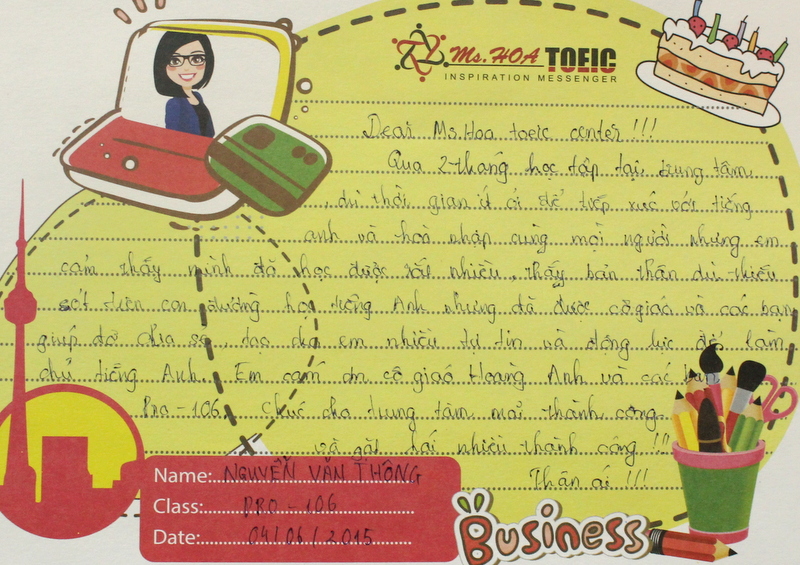 Ms.HOA TOEIC
INSPIRATION MESSENGER
Dear Ms.Hoa toeic center !!!
Qua 2 tháng học tập tại trung tâm,
dù thời gian ít ỏi để tiếp xúc với tiếng
anh và hoà nhập cùng mọi người nhưng em
cảm thấy mình đã học được rất nhiều, thấy bản thân dù thiếu
sót trên con đường học tiếng Anh nhưng đã được cô giáo và các bạn
giúp đỡ chia sẻ, tạo cho em nhiều tự tin và động lực để làm
chủ tiếng Anh. Em cảm ơn cô giáo Hoàng Anh và các bạn
Pro-106. Chúc cho trung tâm mãi thành công
và gặt hái nhiều thành công !!!
Thân ái !!!
Name: NGUYỄN VĂN THÔNG
Class: PRO-106
Date: 04/06/2015
Business